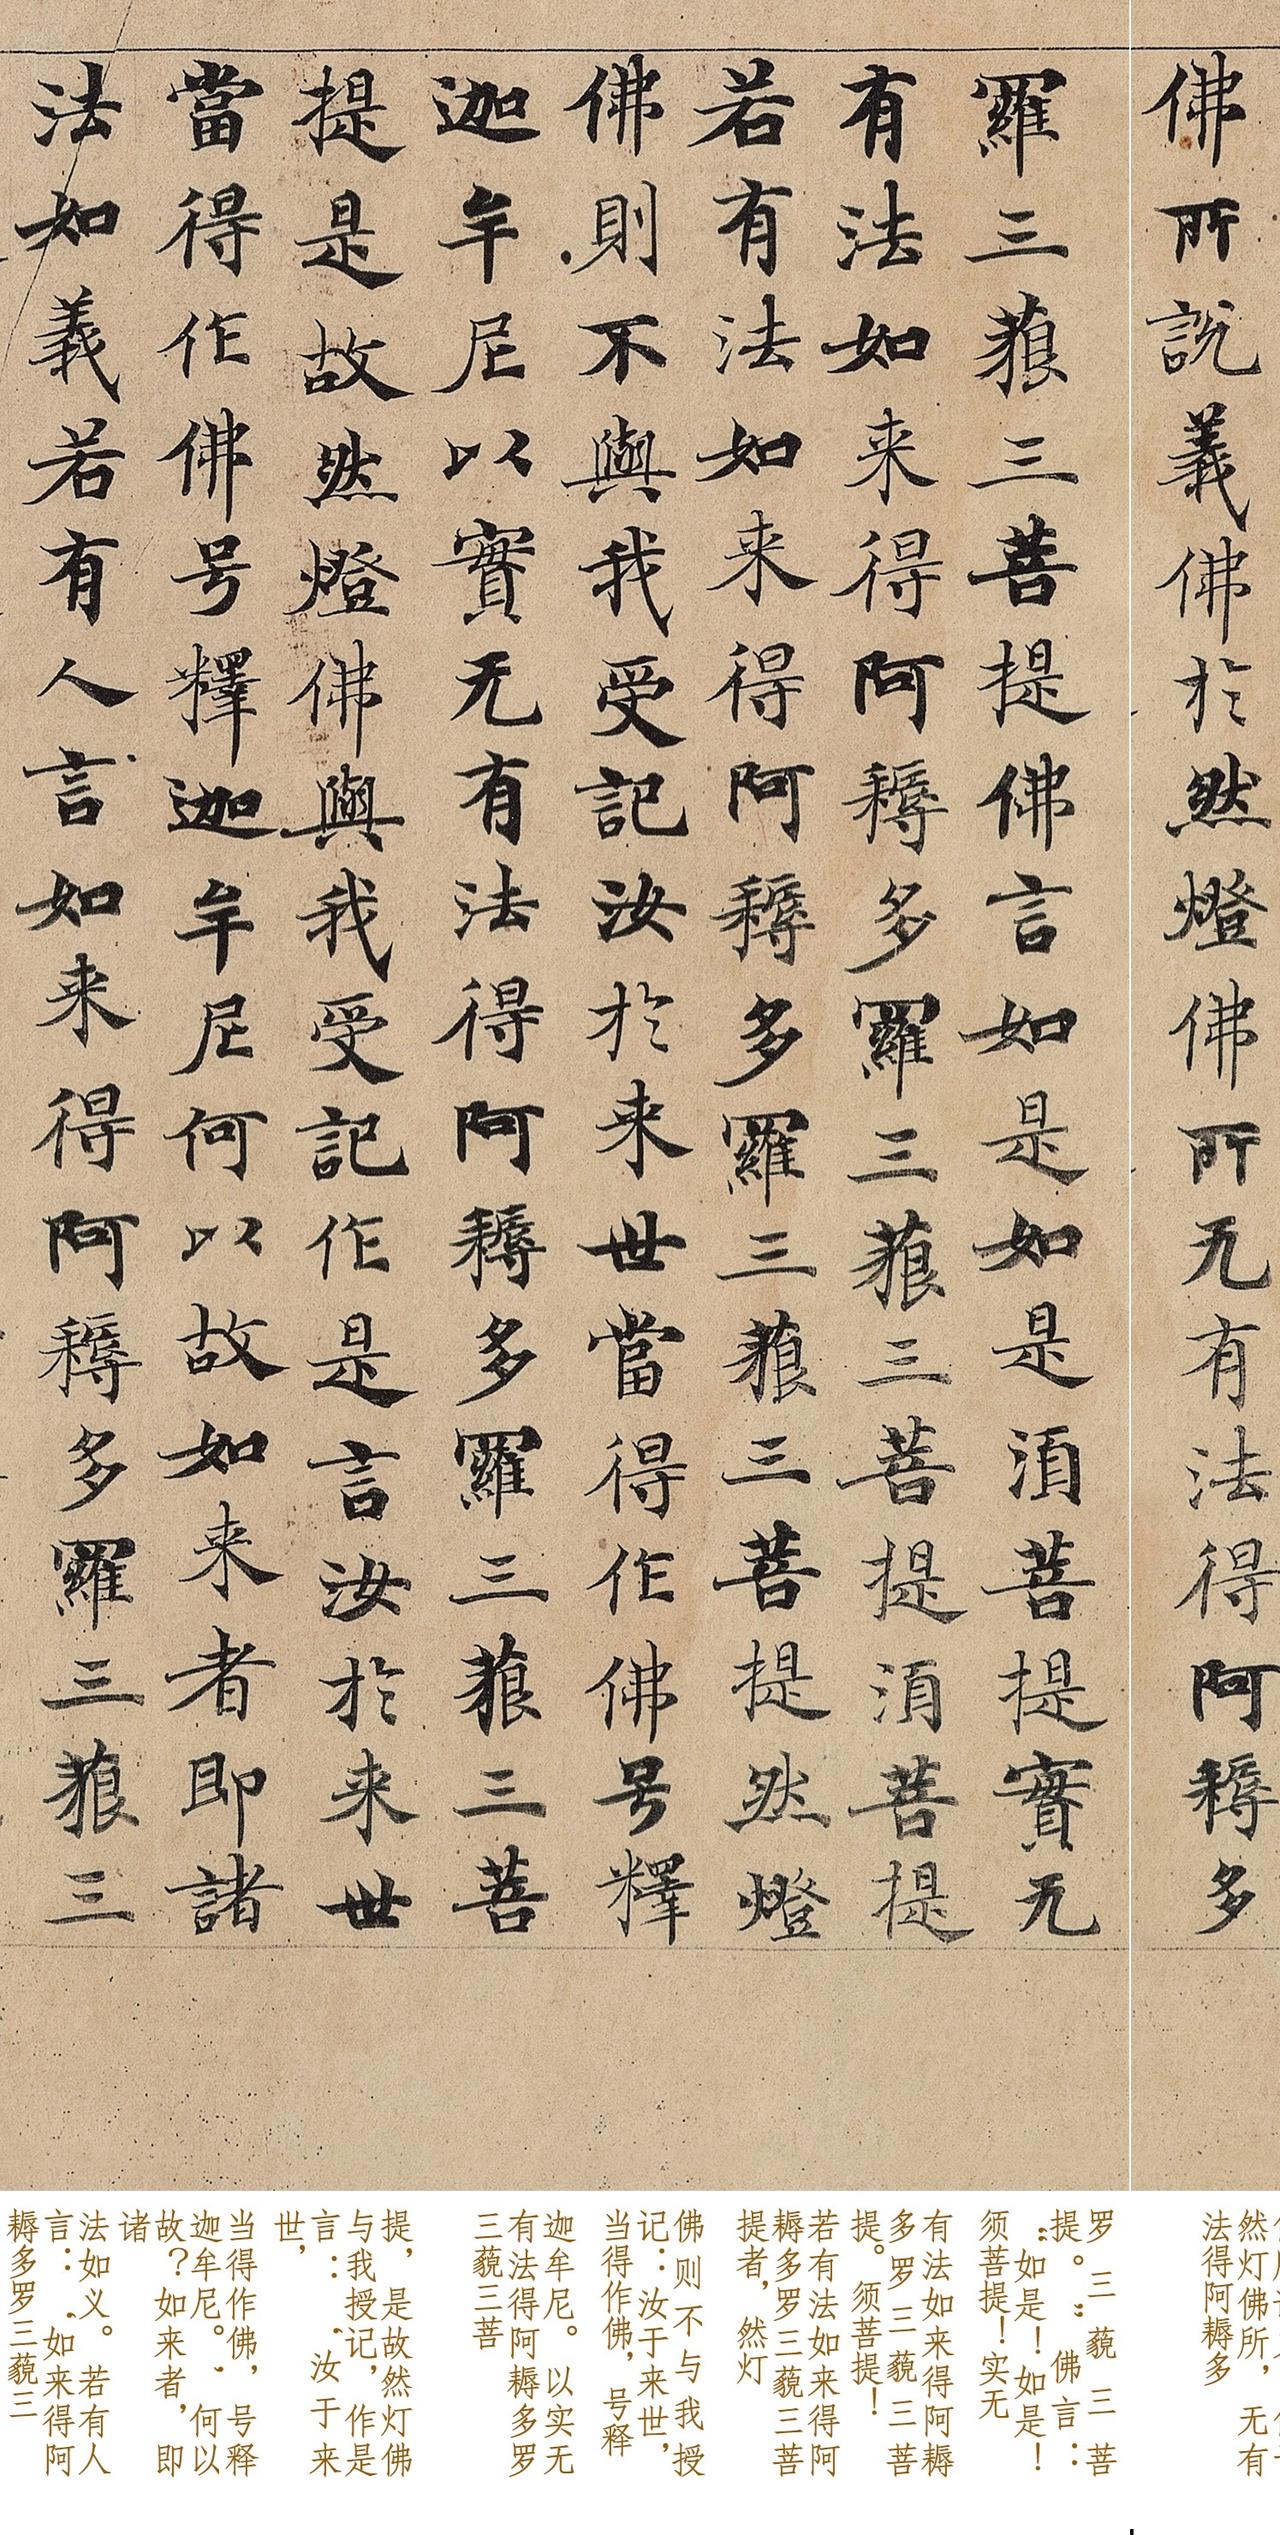 佛所說義佛於然燈佛所无有法得阿耨多
羅三藐三菩提佛言如是如是須菩提實无
有法如来得阿耨多羅三藐三菩提須菩提
若有法如来得阿耨多羅三藐三菩提然燈
佛則不與我受記汝於来世當得作佛号釋
迦牟尼以實无有法得阿耨多羅三藐三菩
提是故然燈佛與我受記作是言汝於来世
當得作佛号釋迦牟尼何以故如来者即諸
法如義若有人言如来得阿耨多羅三藐三
然灯佛所，无有
法得阿耨多
罗三藐三菩
提。”佛言：
“如是！如是！
须菩提！实无
有法如来得阿耨
多罗三藐三菩
提。须菩提！
若有法如来得阿
耨多罗三藐三菩
提者，然灯
佛则不与我授
记：汝于来世，
当得作佛，号释
迦牟尼。以实无
有法得阿耨多罗
三藐三菩
提，是故然灯佛
与我授记，作是
言：‘汝于来
世，
当得作佛，号释
迦牟尼。’何以
故？如来者，即
诸
法如义。若有人
言：‘如来得阿
耨多罗三藐三